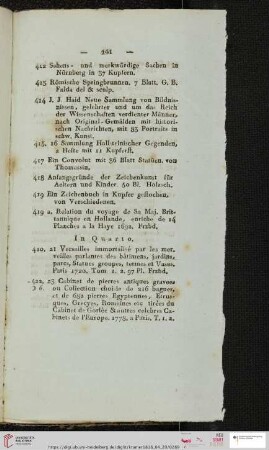 412 Sehens- und merkwürdige Sachen in
Nürnberg in 37 Kupfern.
413 Römische Springbrunnen, 7 Blatt, G. B.
Falda del & sculp.
414 J. J. Haid Neue Sammlung von Bildnis-
nissen, gelehrter und um das Reich
der Wissenschaften verdienter Männer,
nach Original-Gemälden mit histori-
schen Nachrichten, mit 85 Portraits in
schw. Kunst.
415. 16 Sammlung Hollsteinischer Gegenden,
2 Hefte mit 11 Kupferst.
417 Ein Convolut mit 36 Blatt Statuen von
Thomassin.
418 Anfangsgründe der Zeichenkunst für
Aeltern und Kinder. 50 Bl. Holzsch.
419 Ein Zeichenbuch in Kupfer gestochen,
von Verschiedenen.
419 a. Relation du voyage de Sa Maj. Bri-
tannique en Hollande, enrichie de 14
Planches a la Haye 1692. Frzbd.
In Quarto.
420. 21 Versailles immortalisé par les mer-
veilles parlantes des bâtimens, jardins,
parcs, Statues groupes, termes et Vases.
Paris 1720. Tom. 1. 2. 97 Pl. Frzbd.
422. 23 Cabinet de pierres antiques gravees
ou Collection choisie de 216 bagues,
et de 682 pierres Egyptiennes, Etrus-
ques, Grecques, Romaines etc tirées du
Cabinet de Gorlée &autres celebres Ca-
binets de l'Europe. 1778. a Paris. T. 1. 2.